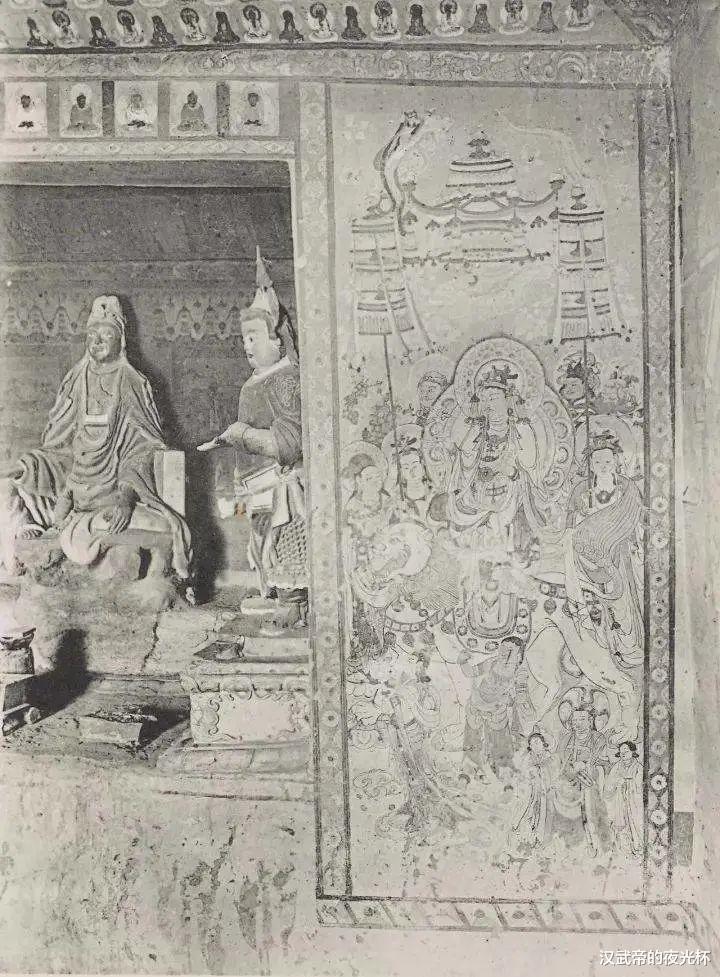 汉武帝的夜光杯